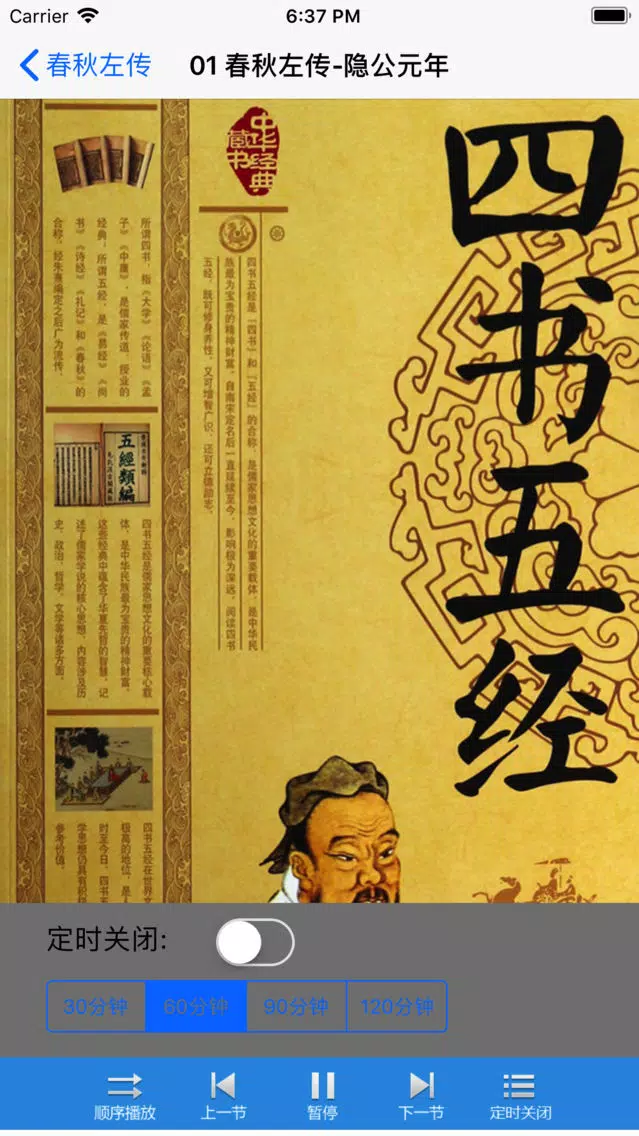 Carrier
6:37 PM
春秋左传
01 春秋左传-隐公元年
四书五经
中华经典
藏书
四书五经是「四书」和「五经」的合称，是儒家思想文化的重要载体，是中华民
族最为宝贵的精神财富，自南宋定名后一直延续至今，影响极为深远，阅读四书
五经，既可修身养性，又可增智广识，还可立德励志。
所谓四书，指《大学》《论语》《孟
子》《中庸》，是儒家传道、授业的
经典，所谓五经，是《易经》《尚
书》《诗经》《礼记》和《春秋》的
合称，经朱熹编定之后广为流传。
五經類編
四书五经是儒家思想文化的重要核心载
体，是中华民族最为宝贵的精神财富，
这些经典中蕴含了华夏先哲的智慧，记
述了儒家学说的核心思想，内容涉及历
史、政治、哲学、文学等诸多方面。
四书五经在世界文
极高的地位，是
时至今日，四书五
学思想仍具有积极
参考价值。
定时关闭:
30分钟
60分钟
90分钟
120分钟
顺序播放
上一节
暂停
下一节
定时关闭